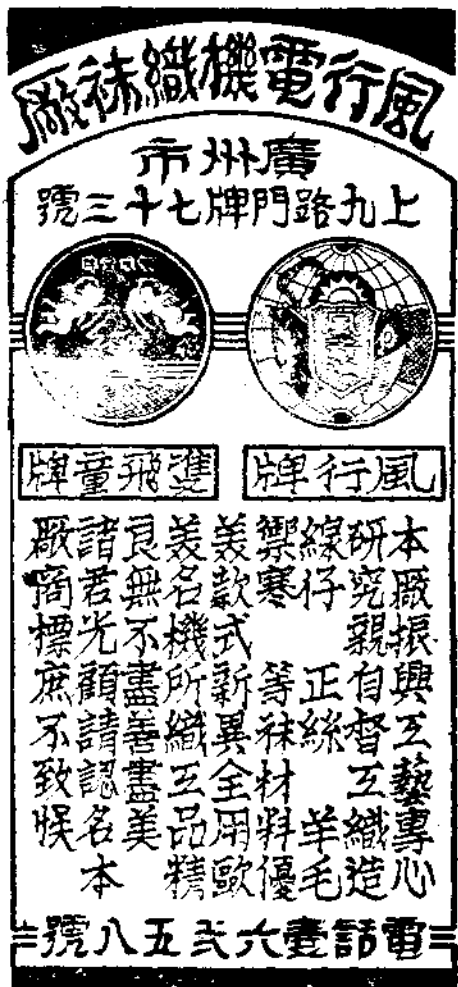 風行電機織袜厰
廣州市
上九路門牌七十三號
風行牌
雙飛童牌
本厰振興工藝專心
研究親自督工織造
線仔　正絲　羊毛
禦寒　等袜材料優
美款式新異全用歐
美名機所織工品精
良無不盡善盡美
諸君光顧請認名本
厰商標庶不致悞
電話壹六弍五八號